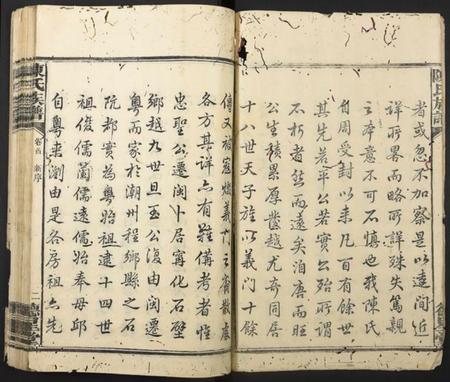 者或忽不加察是以遠間近
詳所畧而略所詳殊失篤親
之本意不可不慎也我陳氏
自周受封以来凡百有餘世
其先若平公若實公殆所謂
不朽者然而遠矣洎唐而
公生積累厚益越尤奇同居
十八世天子旌以義門十餘
傳又被寇燬義門之裔散居
各方其詳亦有難備考者惟
忠聖公遷閩卜居寧化石壁
鄉越九世旦玉公復由閩遷
粵而家於潮州程鄉縣之石
阬都實為粵始祖逮十四世
祖俊儒蘭儒遠儒始奉母邱
自粵来瀏由是各房祖亦先
陳氏族譜
卷首 新序
二
陳氏族譜